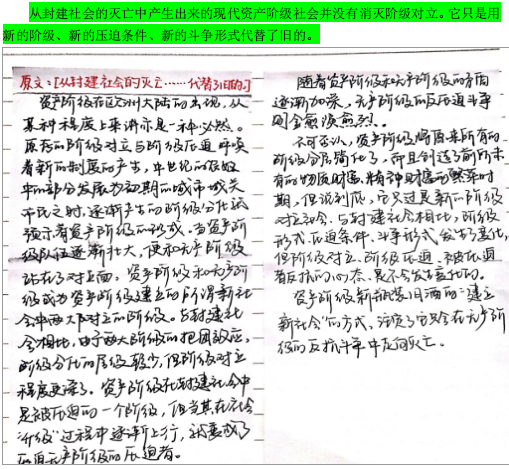 从封建社会的灭亡中产生出来的现代资产阶级社会并没有消灭阶级对立。它只是用
新的阶级、新的压迫条件、新的斗争形式代替了旧的。
原文:[从封建社会的灭亡……代替了旧的]
资产阶级在欧洲大陆的出现,从
某种程度上来讲亦是一种必然。
原有的阶级对立与阶级压迫呼唤
着新的制度的产生,中世纪的农奴
中的部分发展为初期的城市城关
市民之时,逐渐产生的阶级分化就
预示着资产阶级的形成。当资产阶
级队伍逐渐壮大,便和无产阶级
站在了对立面,资产阶级和无产阶
级成为资产阶级建立的所谓新社
会中两大对立的阶级。与封建社
会相比,由于两大阶级的抱团效应,
阶级分化的层级较少,但阶级对立
程度更深了。资产阶级在封建社会中
是被压迫的一个阶级,但当其在社会
“升级”过程中逐渐上行,就变成了
压迫无产阶级的压迫者。
随着资产阶级和无产阶级的矛盾
逐渐加深,无产阶级的反压迫斗争
则会愈演愈烈。
不可否认,资产阶级将原来所有的
阶级分层简化了,而且创造了前所未
有的物质财富、精神财富的繁荣时
期,但说到底,它只过是新的阶级
对立社会。与封建社会相比,阶级
形式、压迫条件、斗争形式发生了变化,
但阶级对立、阶级压迫、被压迫
者反抗的心态,是不会发生变化的。
资产阶级新瓶装旧酒的“建立
新社会”的方式,注定了它只会在无产阶
级的反抗斗争中走向灭亡。